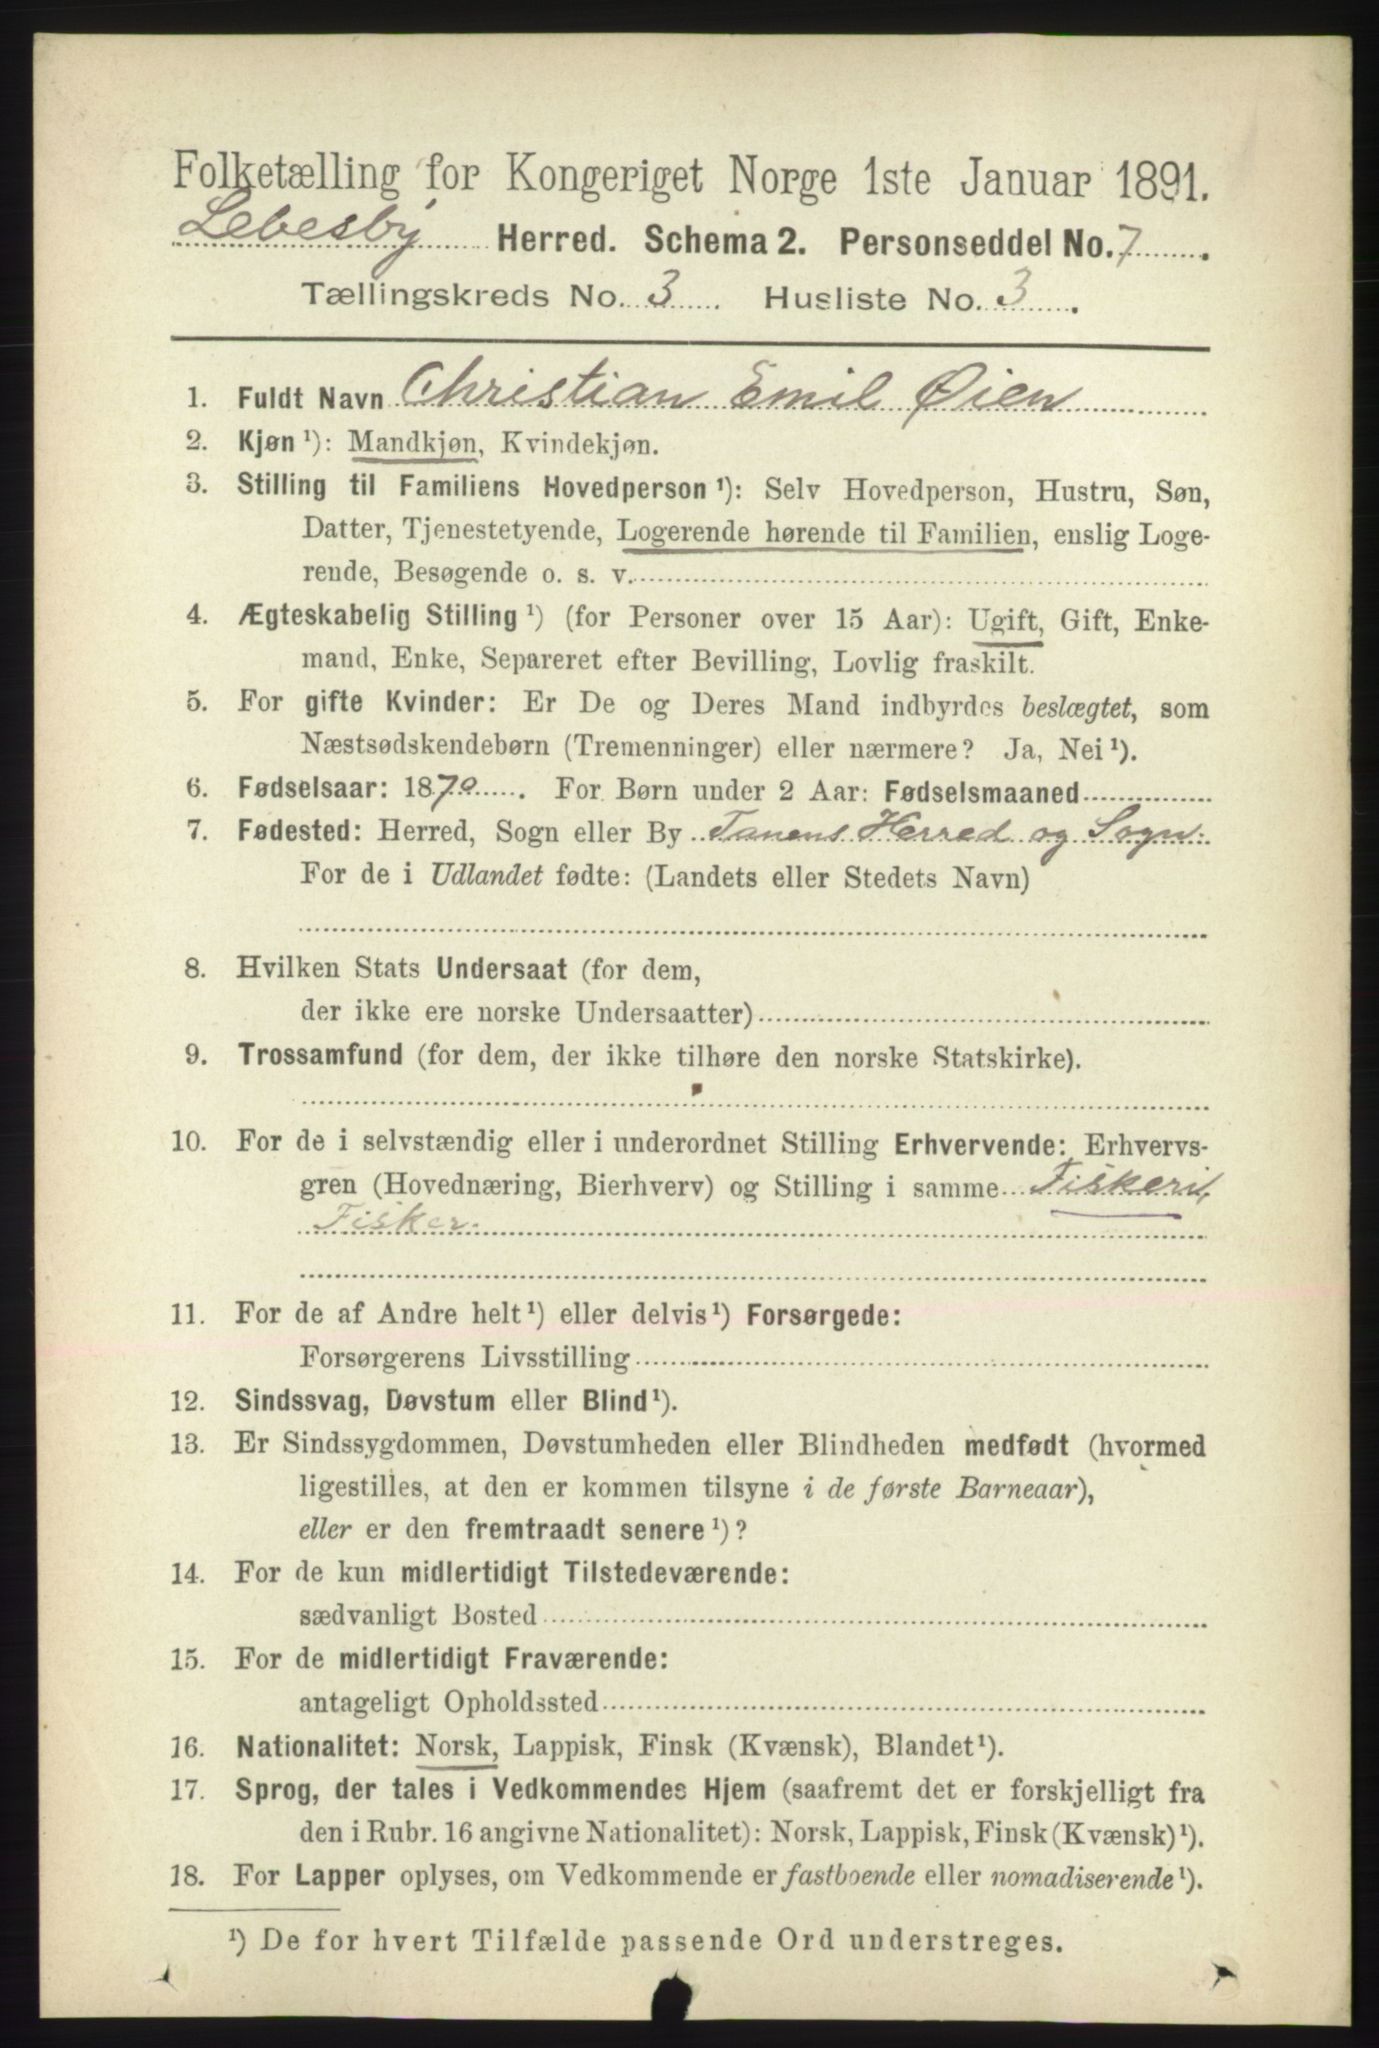 Folketælling for Kongeriget Norge 1ste Januar 1891.
Lebesby Herred. Schema 2. Personseddel No. 7.
Tællingskreds No. 3. Husliste No. 3.
1. Fuldt Navn Christian Emil Øien
2. Kjøn ¹): Mandkjøn, Kvindekjøn.
3. Stilling til Familiens Hovedperson ¹): Selv Hovedperson, Hustru, Søn,
Datter, Tjenestetyende, Logerende hørende til Familien, enslig Loge-
rende, Besøgende o. s. v.
4. Ægteskabelig Stilling ¹) (for Personer over 15 Aar): Ugift, Gift, Enke-
mand, Enke, Separeret efter Bevilling, Lovlig fraskilt.
5. For gifte Kvinder: Er De og Deres Mand indbyrdes beslægtet, som
Næstsødskendebørn (Tremenninger) eller nærmere? Ja, Nei ¹).
6. Fødselsaar: 1870. For Børn under 2 Aar: Fødselsmaaned
7. Fødested: Herred, Sogn eller By Tanens Herred og Sogn.
For de i Udlandet fødte: (Landets eller Stedets Navn)
8. Hvilken Stats Undersaat (for dem,
der ikke ere norske Undersaatter)
9. Trossamfund (for dem, der ikke tilhøre den norske Statskirke).
10. For de i selvstændig eller i underordnet Stilling Erhvervende: Erhvervs-
gren (Hovednæring, Bierhverv) og Stilling i samme Fiskeri,
Fisker.
11. For de af Andre helt ¹) eller delvis ¹) Forsørgede:
Forsørgerens Livsstilling
12. Sindssvag, Døvstum eller Blind ¹).
13. Er Sindssygdommen, Døvstumheden eller Blindheden medfødt (hvormed
ligestilles, at den er kommen tilsyne i de første Barneaar),
eller er den fremtraadt senere ¹)?
14. For de kun midlertidigt Tilstedeværende:
sædvanligt Bosted
15. For de midlertidigt Fraværende:
antageligt Opholdssted
16. Nationalitet: Norsk, Lappisk, Finsk (Kvænsk), Blandet ¹).
17. Sprog, der tales i Vedkommendes Hjem (saafremt det er forskjelligt fra
den i Rubr. 16 angivne Nationalitet): Norsk, Lappisk, Finsk (Kvænsk) ¹).
18. For Lapper oplyses, om Vedkommende er fastboende eller nomadiserende ¹).
¹) De for hvert Tilfælde passende Ord understreges.